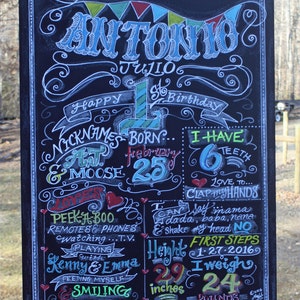 ANTONIO
JULIO
Happy 1st Birthday
NICKNAMES
ANT & MOOSE
BORN:
february
23
I HAVE
6 TEETH
& LOVE TO
CLAP HANDS
LOVES
PEEK-A-BOO
REMOTES & PHONES
watching T.V.
PLAYING
with
Kenny & Emma
FEEDING MYSELF
& SMILING
I CAN say mama
dada, baba, nana
& shake my head NO
FIRST STEPS
1-27-2016
Height
29
inches
I weigh
24
POUNDS